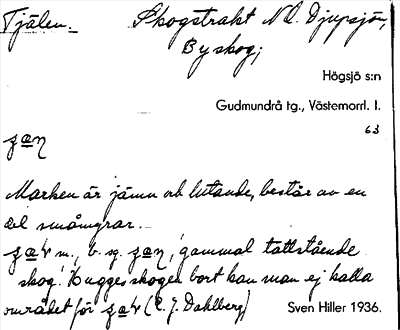 Tjälen. Skogstrakt N.O. Djupsjön,
Byskog;
Högsjö s:n
Gudmundrå tg., Västernorrl. l.
63
Marken är jämn och lutande, består av en
del småmyrar.
m., b. sg. gammal tättstående
skog. Hugges skogen bort kan man ej kalla
området för (E. J. Dahlberg) Sven Hiller 1936.